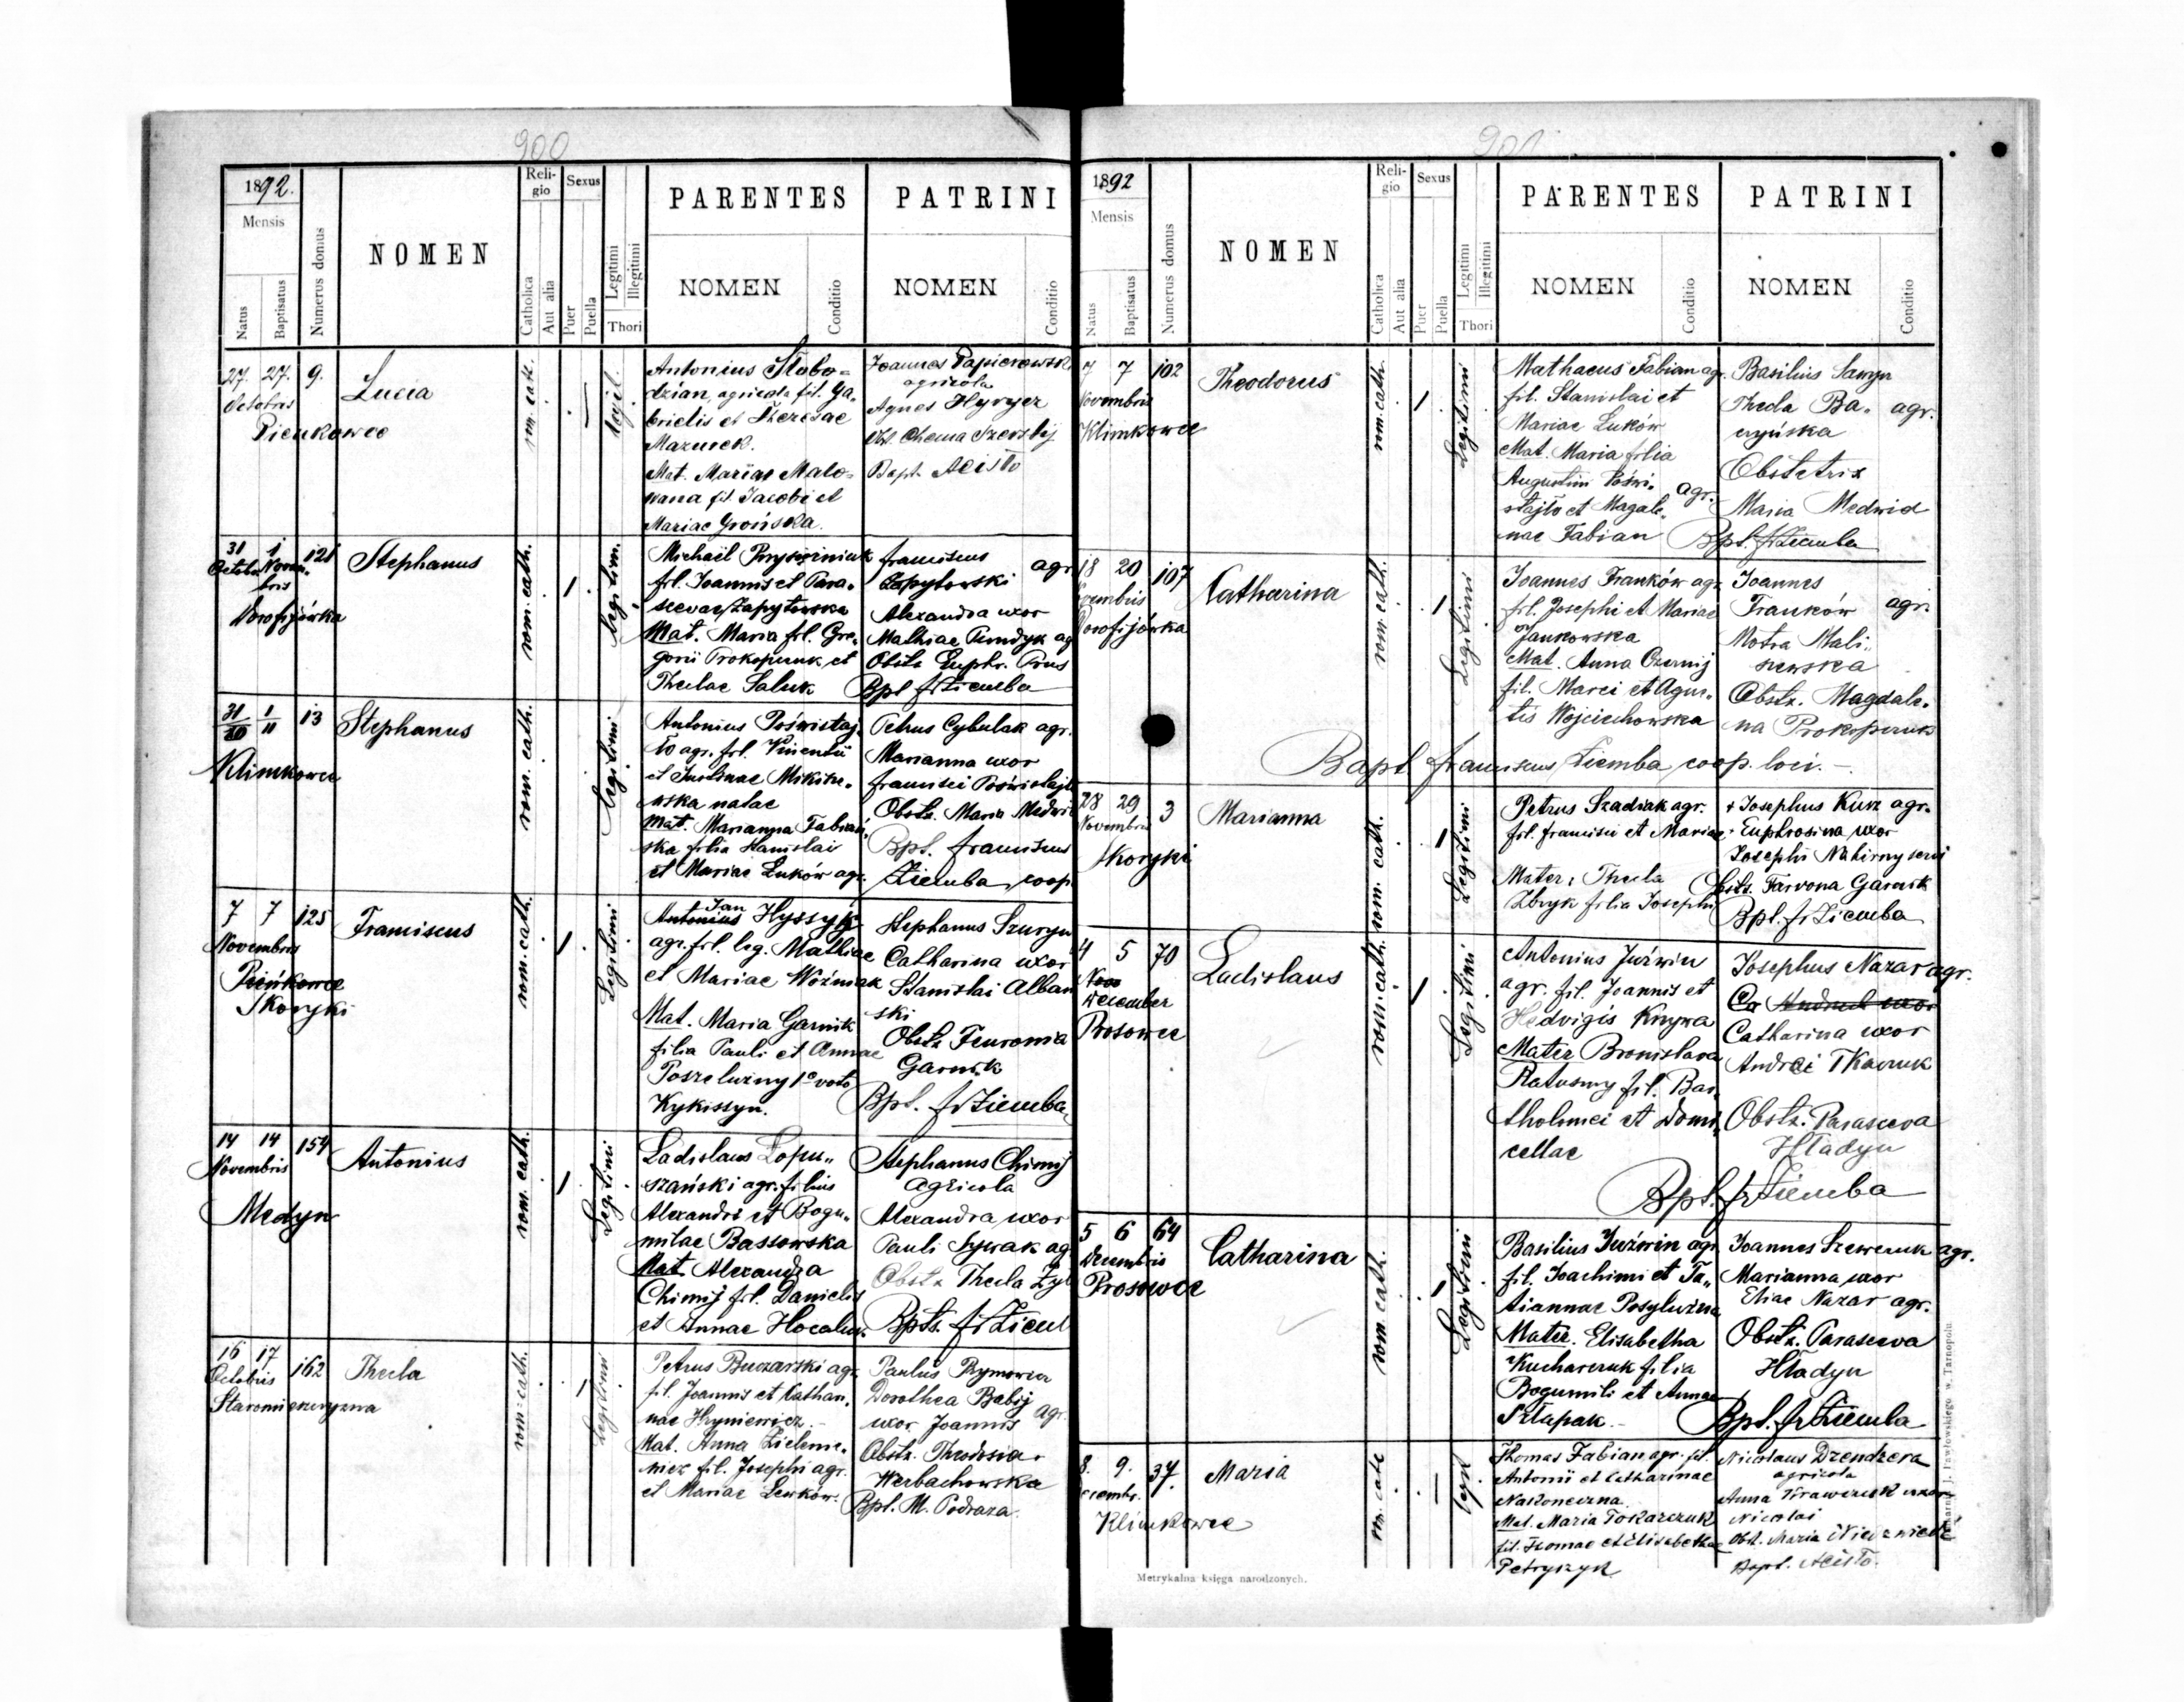 900
1892.
Mensis
Natus
Baptisatus
Numerus domus
NOMEN
Religio
Catholica
Aut alia
Sexus
Puer
Puella
Legitimi
Illegitimi
Thori
PARENTES
NOMEN
Conditio
PATRINI
NOMEN
Conditio
27. 27. 9.
Octobris
Pienkowce
Lucia
rom. cat.
legit.
Antonius Słobo=
dzian, agricola fil. Ga=
brielis et Theresae
Mazurek.
Mat. Marian Malo=
wana fil. Jacobi et
Mariae Grońska.
Joannes Papierowsk
agricola
Agnes Hyryez
Obst. Chema Szerskij
Bapt. Alisto
31 1 121
Octobr. Novem.
bris
Dorofijówka
Stephanus
rom. cath.
legitim.
Michaël Pryszniuk
fil. Joannis et Para=
scevae Zapytowska
Mat. Maria fil. Gre=
gorii Prokopczuk et
Theclae Saluk
franciscus agr
Zapytowski
Alexandra uxor
Mathiae Pundyk ag
Obstx Euphr. Prus
Bpt fr Ziemba
31/10 1/11 13
Klimkowce
Stephanus
rom. cath.
legitimi
Antonius Poświstaj=
ło agr. fil. Vincentii
et Justinae Mikitu=
wska natae
Mat. Marianna Fabiań=
ska filia Stanislai
et Mariae Luków agr.
Petrus Cybulak agr.
Marianna uxor
francisci Poświstajło
Obstx. Maria Medwid
Bpt. franciscus
Ziemba coop.
7 7 125
Novembris
Pieńkowce
Skoryki
Franciscus
rom. cath.
Legitimi
Jan
Antonius Hyssyk
agr. fil. leg. Mathiae
et Mariae Woźniak
Mat. Maria Garnik
filia Pauli et Annae
Poszeluzny 1o voto
Kykissyn.
Stephanus Szuryn
Catharina uxor
Stanislai Alban
ski
Obstx Feuronia
Garnik
Bpt. fr Ziemba
14 14 154
Novembris
Medyn
Antonius
rom. cath.
Legitimi
Ladislaus Łopu=
szański agr. filius
Alexandri et Bogu=
milae Bassowska
Mat. Alexandra
Chimij fil. Danielis
et Annae Hocaluk
Stephanus Chimij
agricola
Alexandra uxor
Pauli Sywak ag
Obstx Thecla Zyl
Bpt. fr Ziem
16 17 162
Octobris
Staromiejszczyzna
Thecla
rom. cath.
legitimi
Petrus Buczarski agr.
fil. Joannis et Cathari=
nae Hryniewicz.
Mat. Anna Zielenie=
wicz fil. Josephi agr.
et Mariae Lewków.
Paulus Prymowicz
Dorothea Babij
uxor Joannis agr.
Obstx. Theodosia
Werbachowska
Bpt. M. Podraza.
901
1892
Mensis
Natus
Baptisatus
Numerus domus
NOMEN
Religio
Catholica
Aut alia
Sexus
Puer
Puella
Legitimi
Illegitimi
Thori
PARENTES
NOMEN
Conditio
PATRINI
NOMEN
Conditio
7 7 102
Novembris
Klimkowce
Theodorus
rom. cath.
Legitimi
Mathaeus Fabian agr.
fil. Stanislai et
Mariae Luków
Mat. Maria filia
Augustini Poświ=
stajło et Magdale=
nae Fabian
agr.
Basilius Sawyn
Thecla Ba= agr.
czyńska
Obstetrix
Maria Medwid
Bpt. fr Ziemba
18 20 107
Novembris
Dorofijówka
Catharina
rom. cath.
Legitimi
Joannes Franków agr
fil. Josephi et Mariae
Jankowska
Mat. Anna Czernij
fil. Marci et Agne=
tis Wojciechowska
Joannes
Franków agr.
Motra Mali=
newska
Obstx. Magdale=
na Prokopczuk
Bapt. franciscus Ziemba coop. loci.
28 29 3
Novembris
Skoryki
Marianna
rom. cath.
Legitimi
Petrus Szadiak agr.
fil. francisci et Mariae
Mater. Thecla
Zbryk filia Josephi
+ Josephus Kurz agr.
Euphrosina uxor
Josephi Nahirny servi
Obstx. Farvona Garnik
Bpt. fr Ziemba
4 5 70
Nov
December
Prosowce
Ladislaus
rom. cath.
Legitimi
Antonius Juźwin
agr. fil. Joannis et
Hedvigis Krzywa
Mater Bronislava
Ratuszny fil. Bar=
tholomei et Domi=
cellae
Josephus Nazar agr.
Ca Andreae uxor
Catharina uxor
Andrei Tkaczuk
Obstx. Parasceva
Hładyn
Bpt. fr Ziemba
5 6 64
Decembris
Prosowce
Catharina
rom. cath.
Legitimi
Basilius Juźwin agr.
fil. Joachimi et Ta=
tiannae Posyluzna
Mater. Elisabetha
Kucharczuk filia
Bogumili et Annae
Sztapak.
Joannes Szewczuk agr.
Marianna uxor
Eliae Nazar agr.
Obstx. Parasceva
Hładyn
Bpt. fr Ziemba
8. 9. 37.
Decembr.
Klimkowce
Maria
rom. cath
legit
Thomas Fabian agr. fil.
Antonii et Catharinae
Nakoneczna.
Mat. Maria Tokarczuk
fil. Thomae et Elisabethae
Petryszyn
Nicolaus Dzendzera
agricola
Anna Krawczuk uxor
Nicolai
Obst. Maria Niedzwiedz
Bapt. Alisto.
Metrykalna księga narodzonych.
Drukarnia J. Pawłowskiego w Tarnopolu.